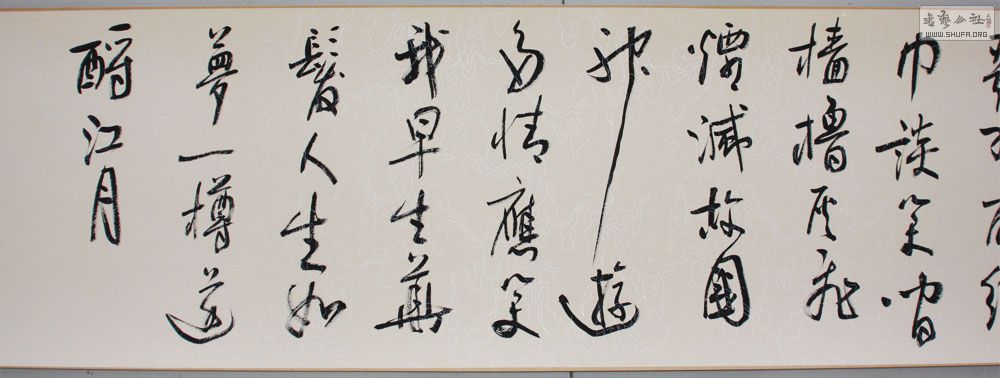 發羽扇綸
巾談笑間
檣櫓灰飛
煙滅故國
神遊
多情應笑
我早生華
髮人生如
夢一樽還
酹江月
書藝公社
WWW.SHUFA.ORG